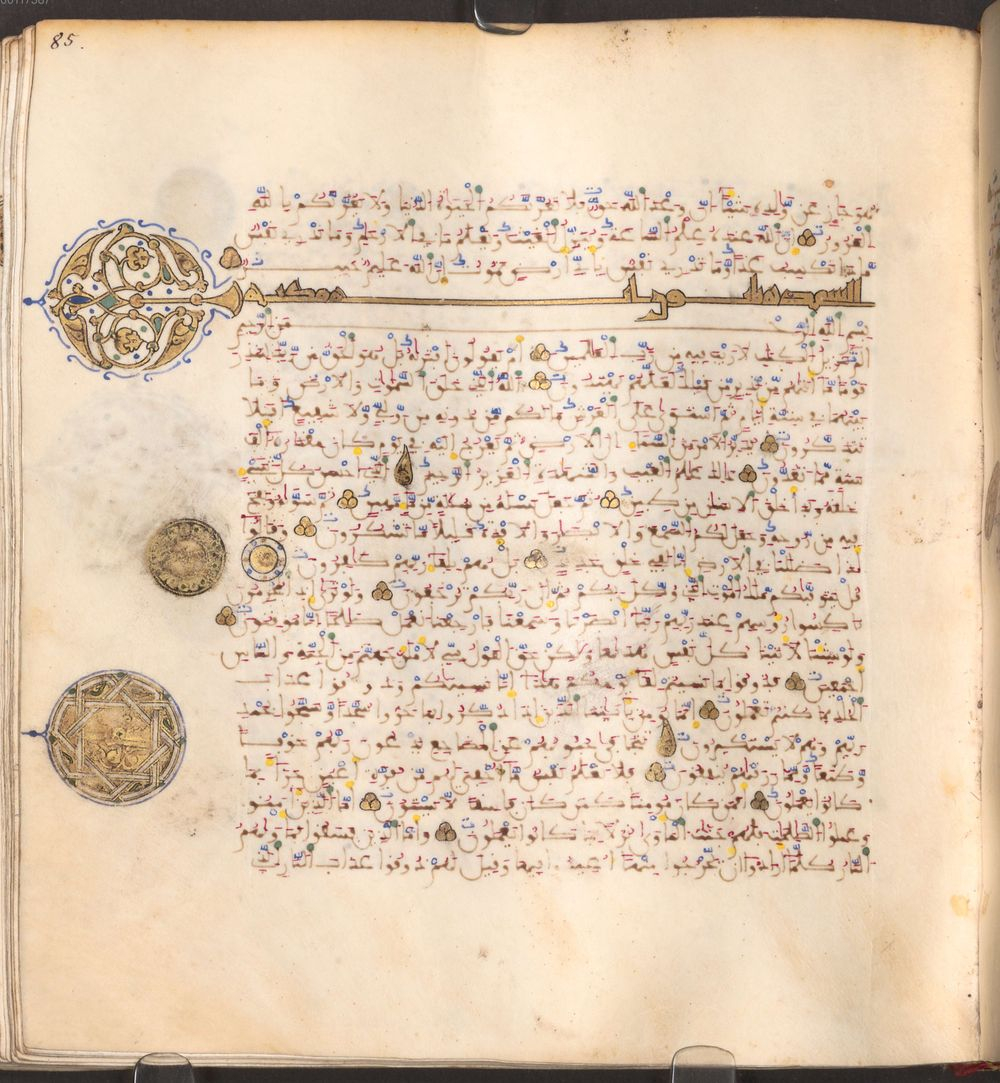 85.
هو جاز عن والده شيئا ان وعد الله حق فلا تغرنكم الحيوة الدنيا ولا يغرنكم بالله
الغرور ان الله عنده علم الساعة وينزل الغيث ويعلم ما في الارحام وما تدري نفس
ماذا تكسب غدا وما تدري نفس باي ارض تموت ان الله عليم خبير
السجدة ثلثون اية مكية
بسم الله الرحمن الرحيم
الم تنزيل الكتب لا ريب فيه من رب العلمين ام يقولون افتريه بل هو الحق من ربك لتنذر
قوما ما اتيهم من نذير من قبلك لعلهم يهتدون الله الذي خلق السموت والارض وما
بينهما في ستة ايام ثم استوى على العرش ما لكم من دونه من ولي ولا شفيع افلا
تتذكرون يدبر الامر من السماء الى الارض ثم يعرج اليه في يوم كان مقداره الف
سنة مما تعدون ذلك علم الغيب والشهدة العزيز الرحيم الذي احسن كل شيء
خلقه وبدا خلق الانسن من طين ثم جعل نسله من سللة من ماء مهين ثم سويه ونفخ
فيه من روحه وجعل لكم السمع والابصر والافدة قليلا ما تشكرون وقالوا
اذا ضللنا في الارض انا لفي خلق جديد بل هم بلقاء ربهم كفرون
قل يتوفيكم ملك الموت الذي وكل بكم ثم الى ربكم ترجعون ولو ترى اذ المجرمون
ناكسوا رءوسهم عند ربهم ربنا ابصرنا وسمعنا فارجعنا نعمل صلحا انا موقنون
ولو شئنا لاتينا كل نفس هديها ولكن حق القول مني لاملان جهنم من الجنة والناس
اجمعين فذوقوا بما نسيتم لقاء يومكم هذا انا نسينكم وذوقوا عذاب
الخلد بما كنتم تعملون انما يومن بايتنا الذين اذا ذكروا بها خروا سجدا وسبحوا بحمد
ربهم وهم لا يستكبرون تتجافى جنوبهم عن المضاجع يدعون ربهم خوفا
وطمعا ومما رزقنهم ينفقون فلا تعلم نفس ما اخفي لهم من قرة اعين جزاء بما
كانوا يعملون افمن كان مومنا كمن كان فاسقا لا يستون اما الذين امنوا
وعملوا الصلحت فلهم جنت الماوى نزلا بما كانوا يعملون واما الذين فسقوا فماويهم
النار كلما ارادوا ان يخرجوا منها اعيدوا فيها وقيل لهم ذوقوا عذاب النار الذي